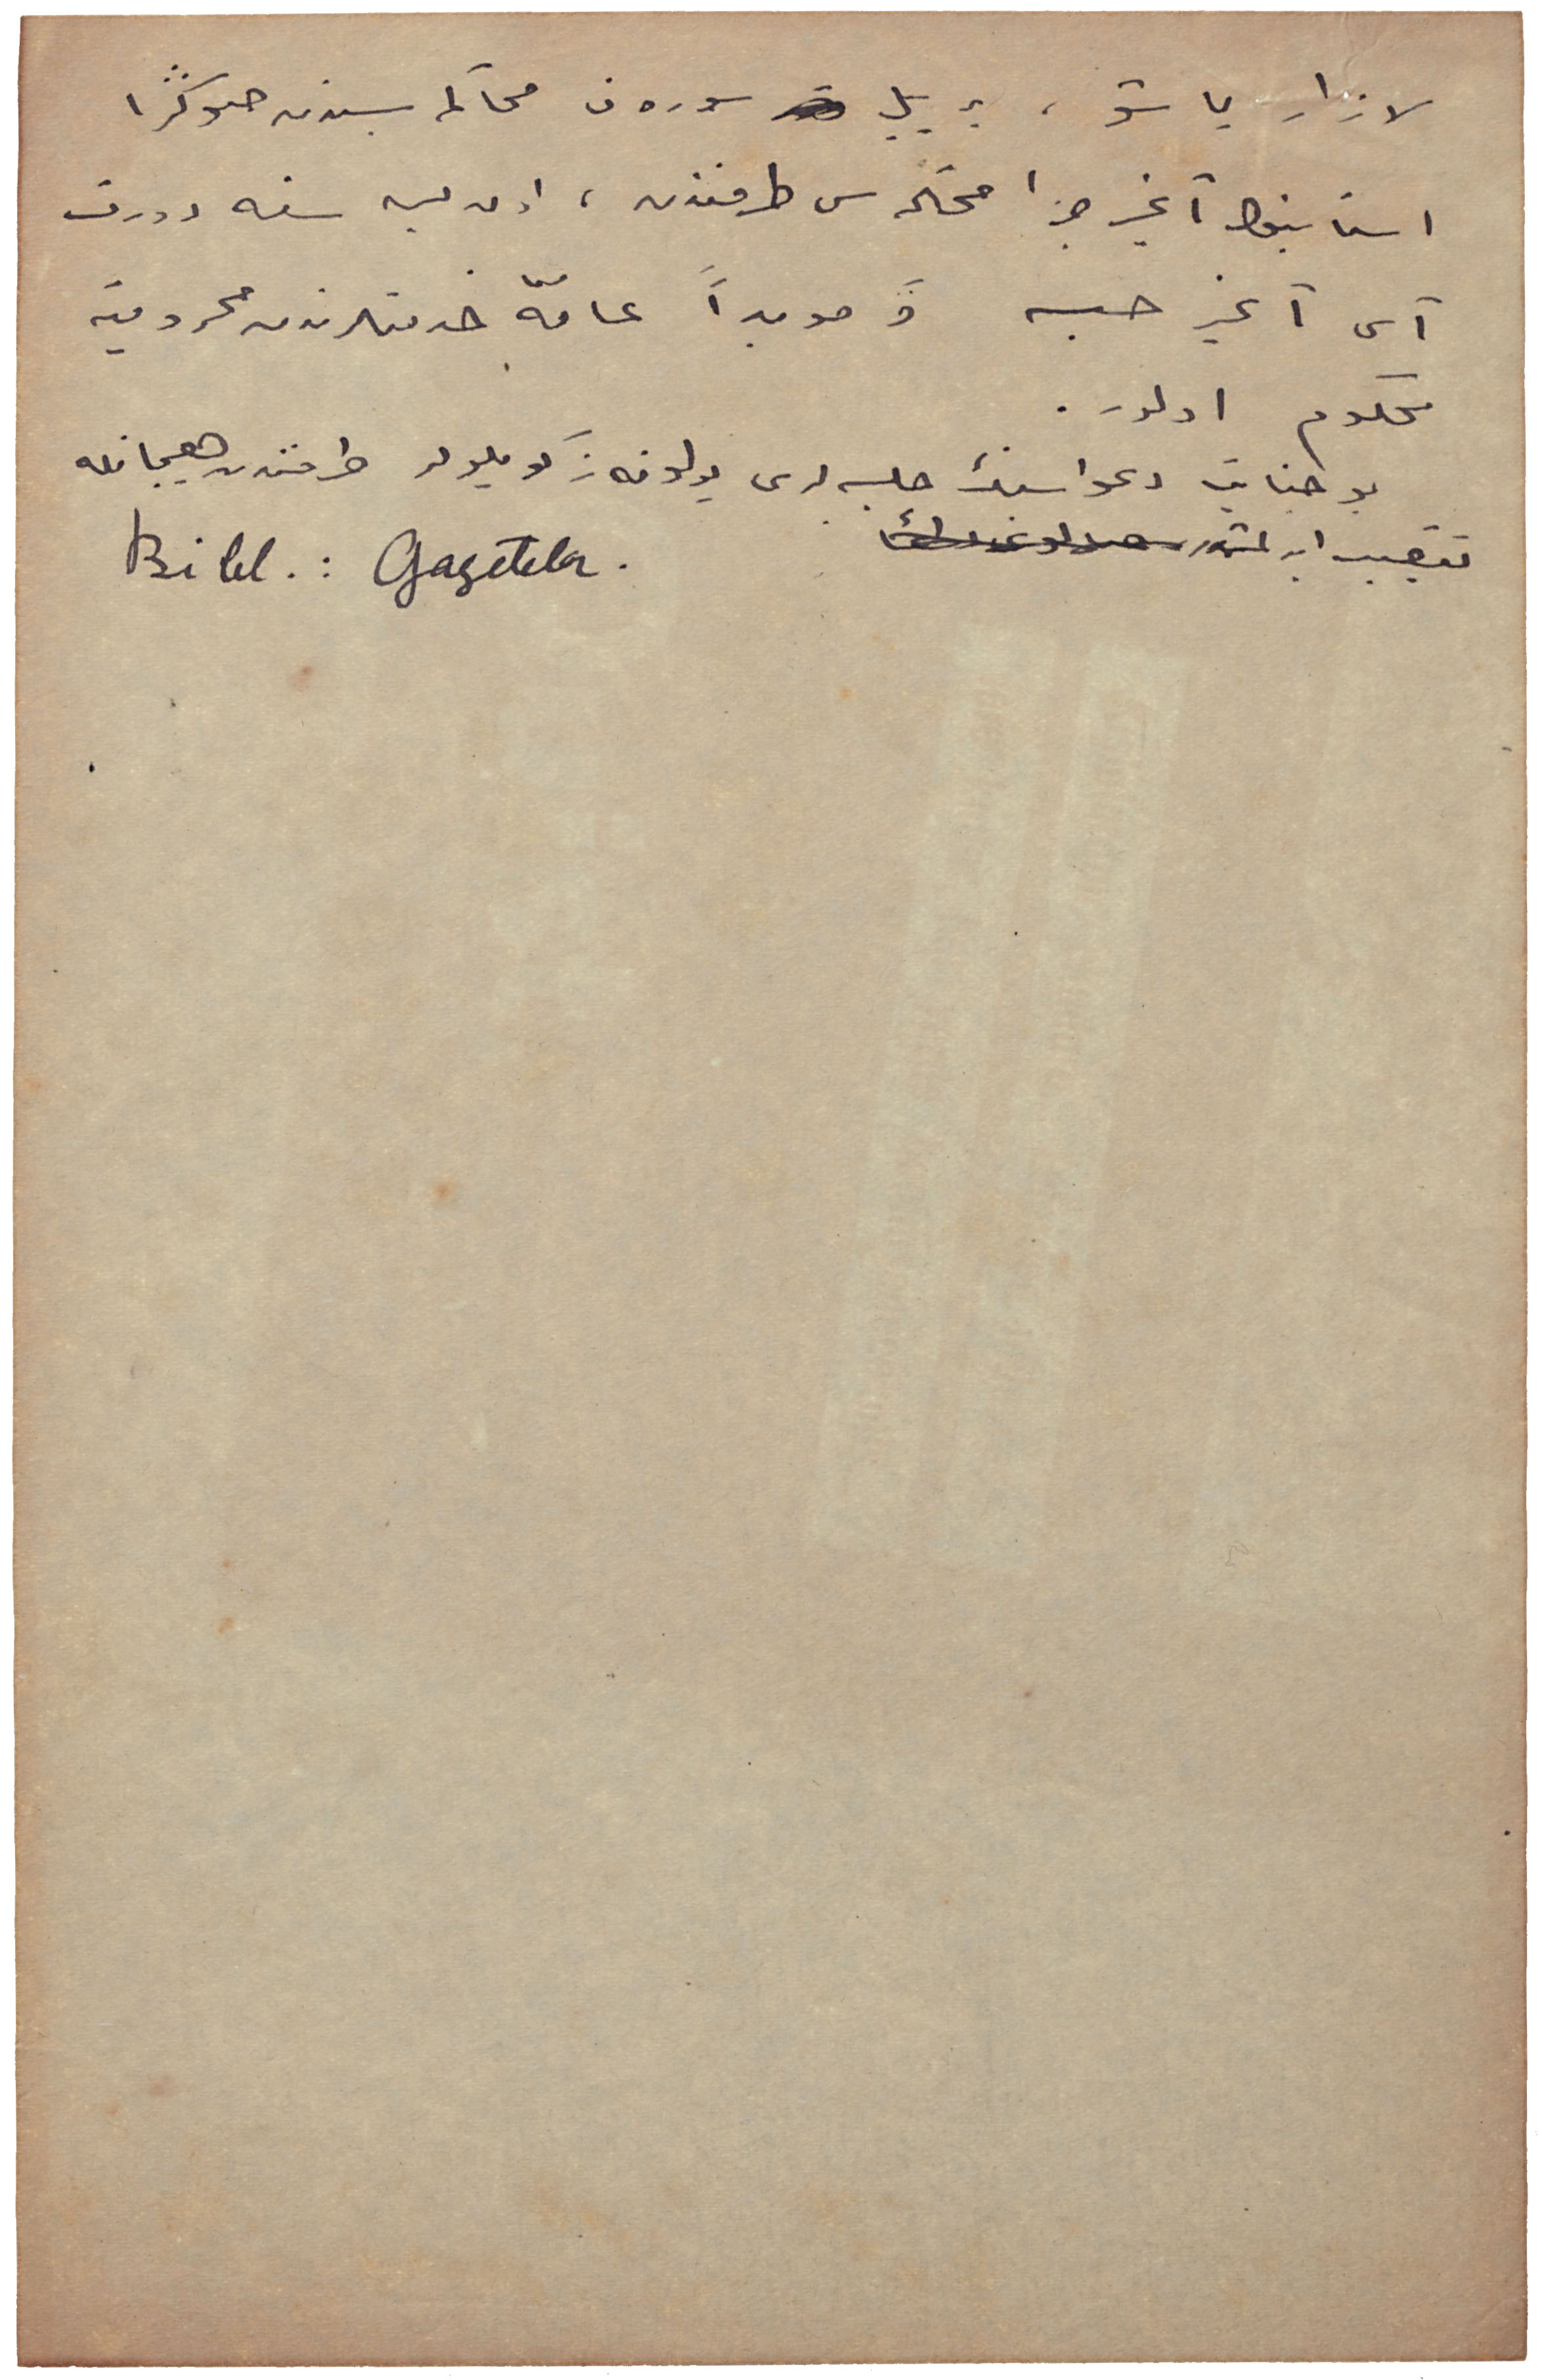 لازار یاشو ، بر ییل سورەن محاکمەسندن صوکرا
استانبول آغیر جزا محکمەسی طرفندن ، اون بیر سنه دورت
آی آغیر حبس و مؤبداً عامّه خدمتلرندن محرومیته
محکوم اولور .
بو جنایت دعواسنك جلسەلری یولونەز کویلولر طرفندن هیجانله
تعقیب ایدلمشدر
Bibl. : Gazeteler.